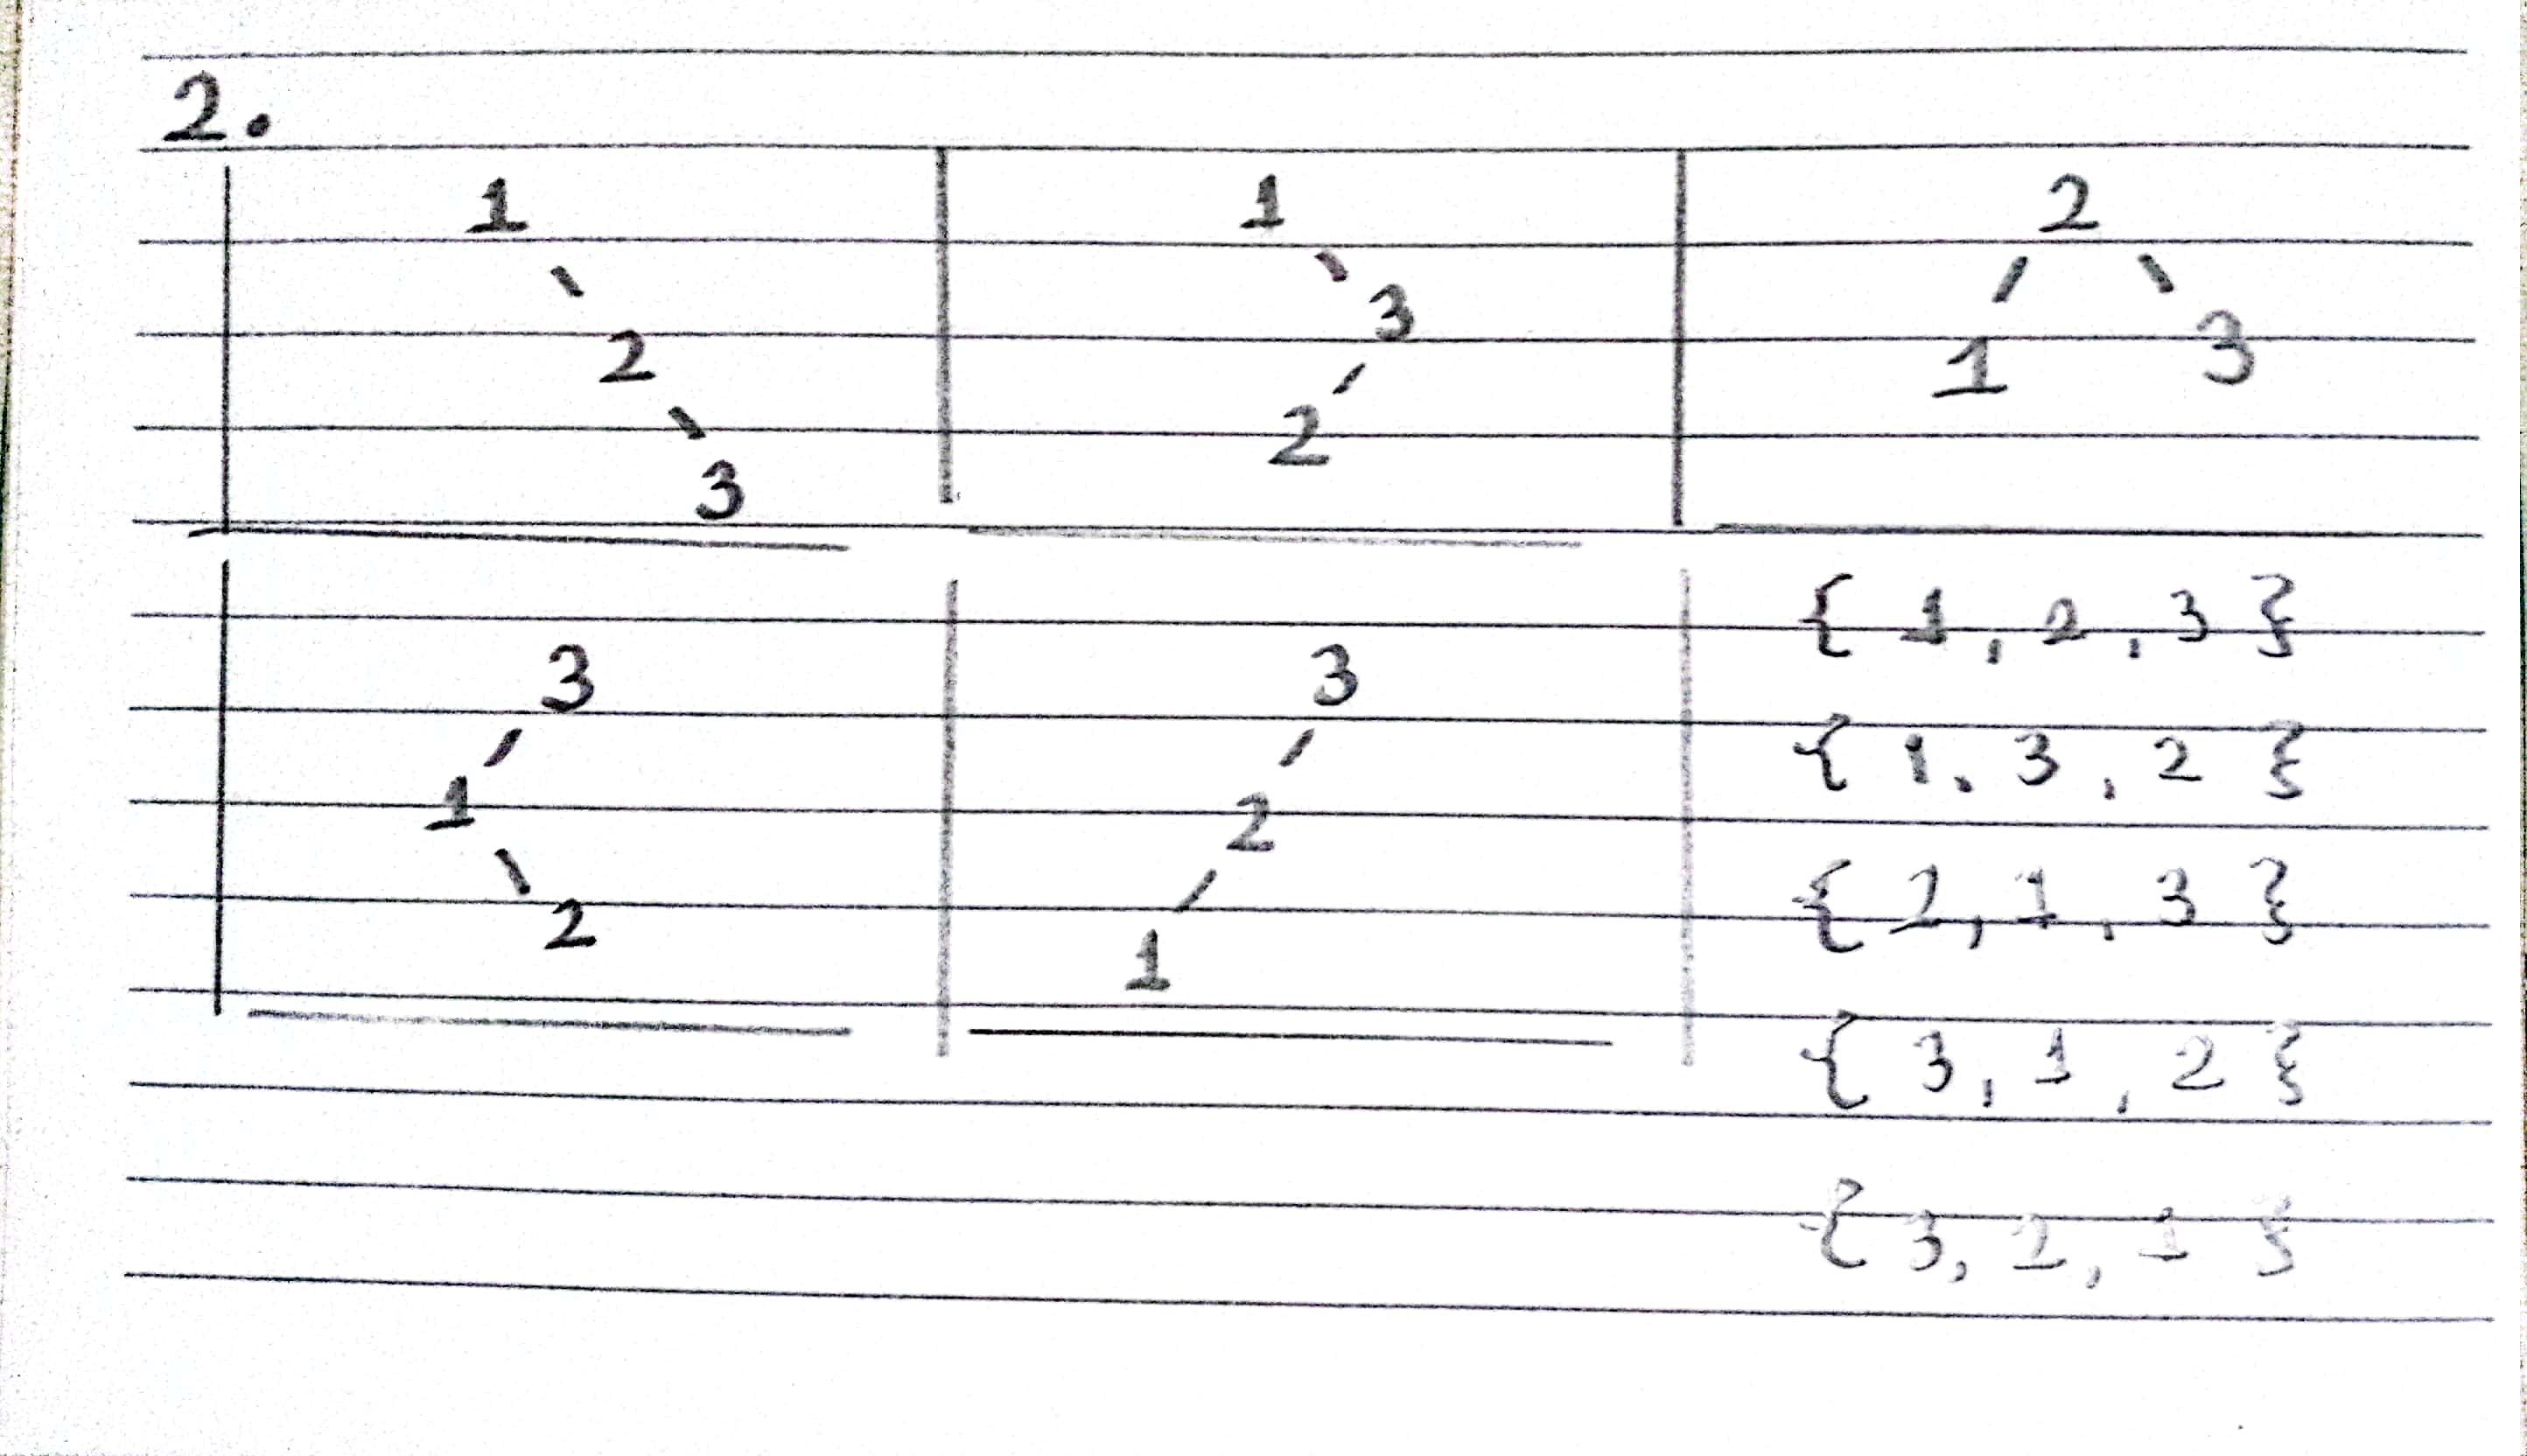 2.
1
2
3
1
3
2
2
1 3
3
1
2
3
2
1
{ 1, 2, 3 }
{ 1, 3, 2 }
{ 2, 1, 3 }
{ 3, 1, 2 }
{ 3, 2, 1 }